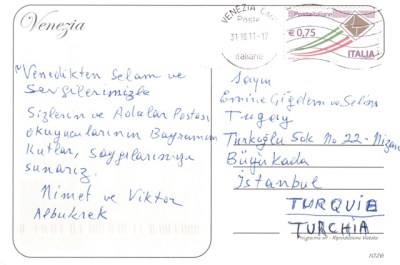 Venezia
"Venedikten Selam ve
Sevgilerimizle
Sizlerin ve Adalar Postası
okuyucularının Bayramını
kutlar, saygılarımızı
sunarız.
Nimet ve Viktor
Albukrek
VENEZIA
Poste
31.10.11-17
Italiane
Posteitaliane
€0,75
ITALIA
Sayın
Emine Çiğdem ve Selim
Tugay
Türkoğlu Sok No 22 - Nizam
Büyükada
İstanbul
TURQUIE
TURCHIA
- Riproduzione Vietata